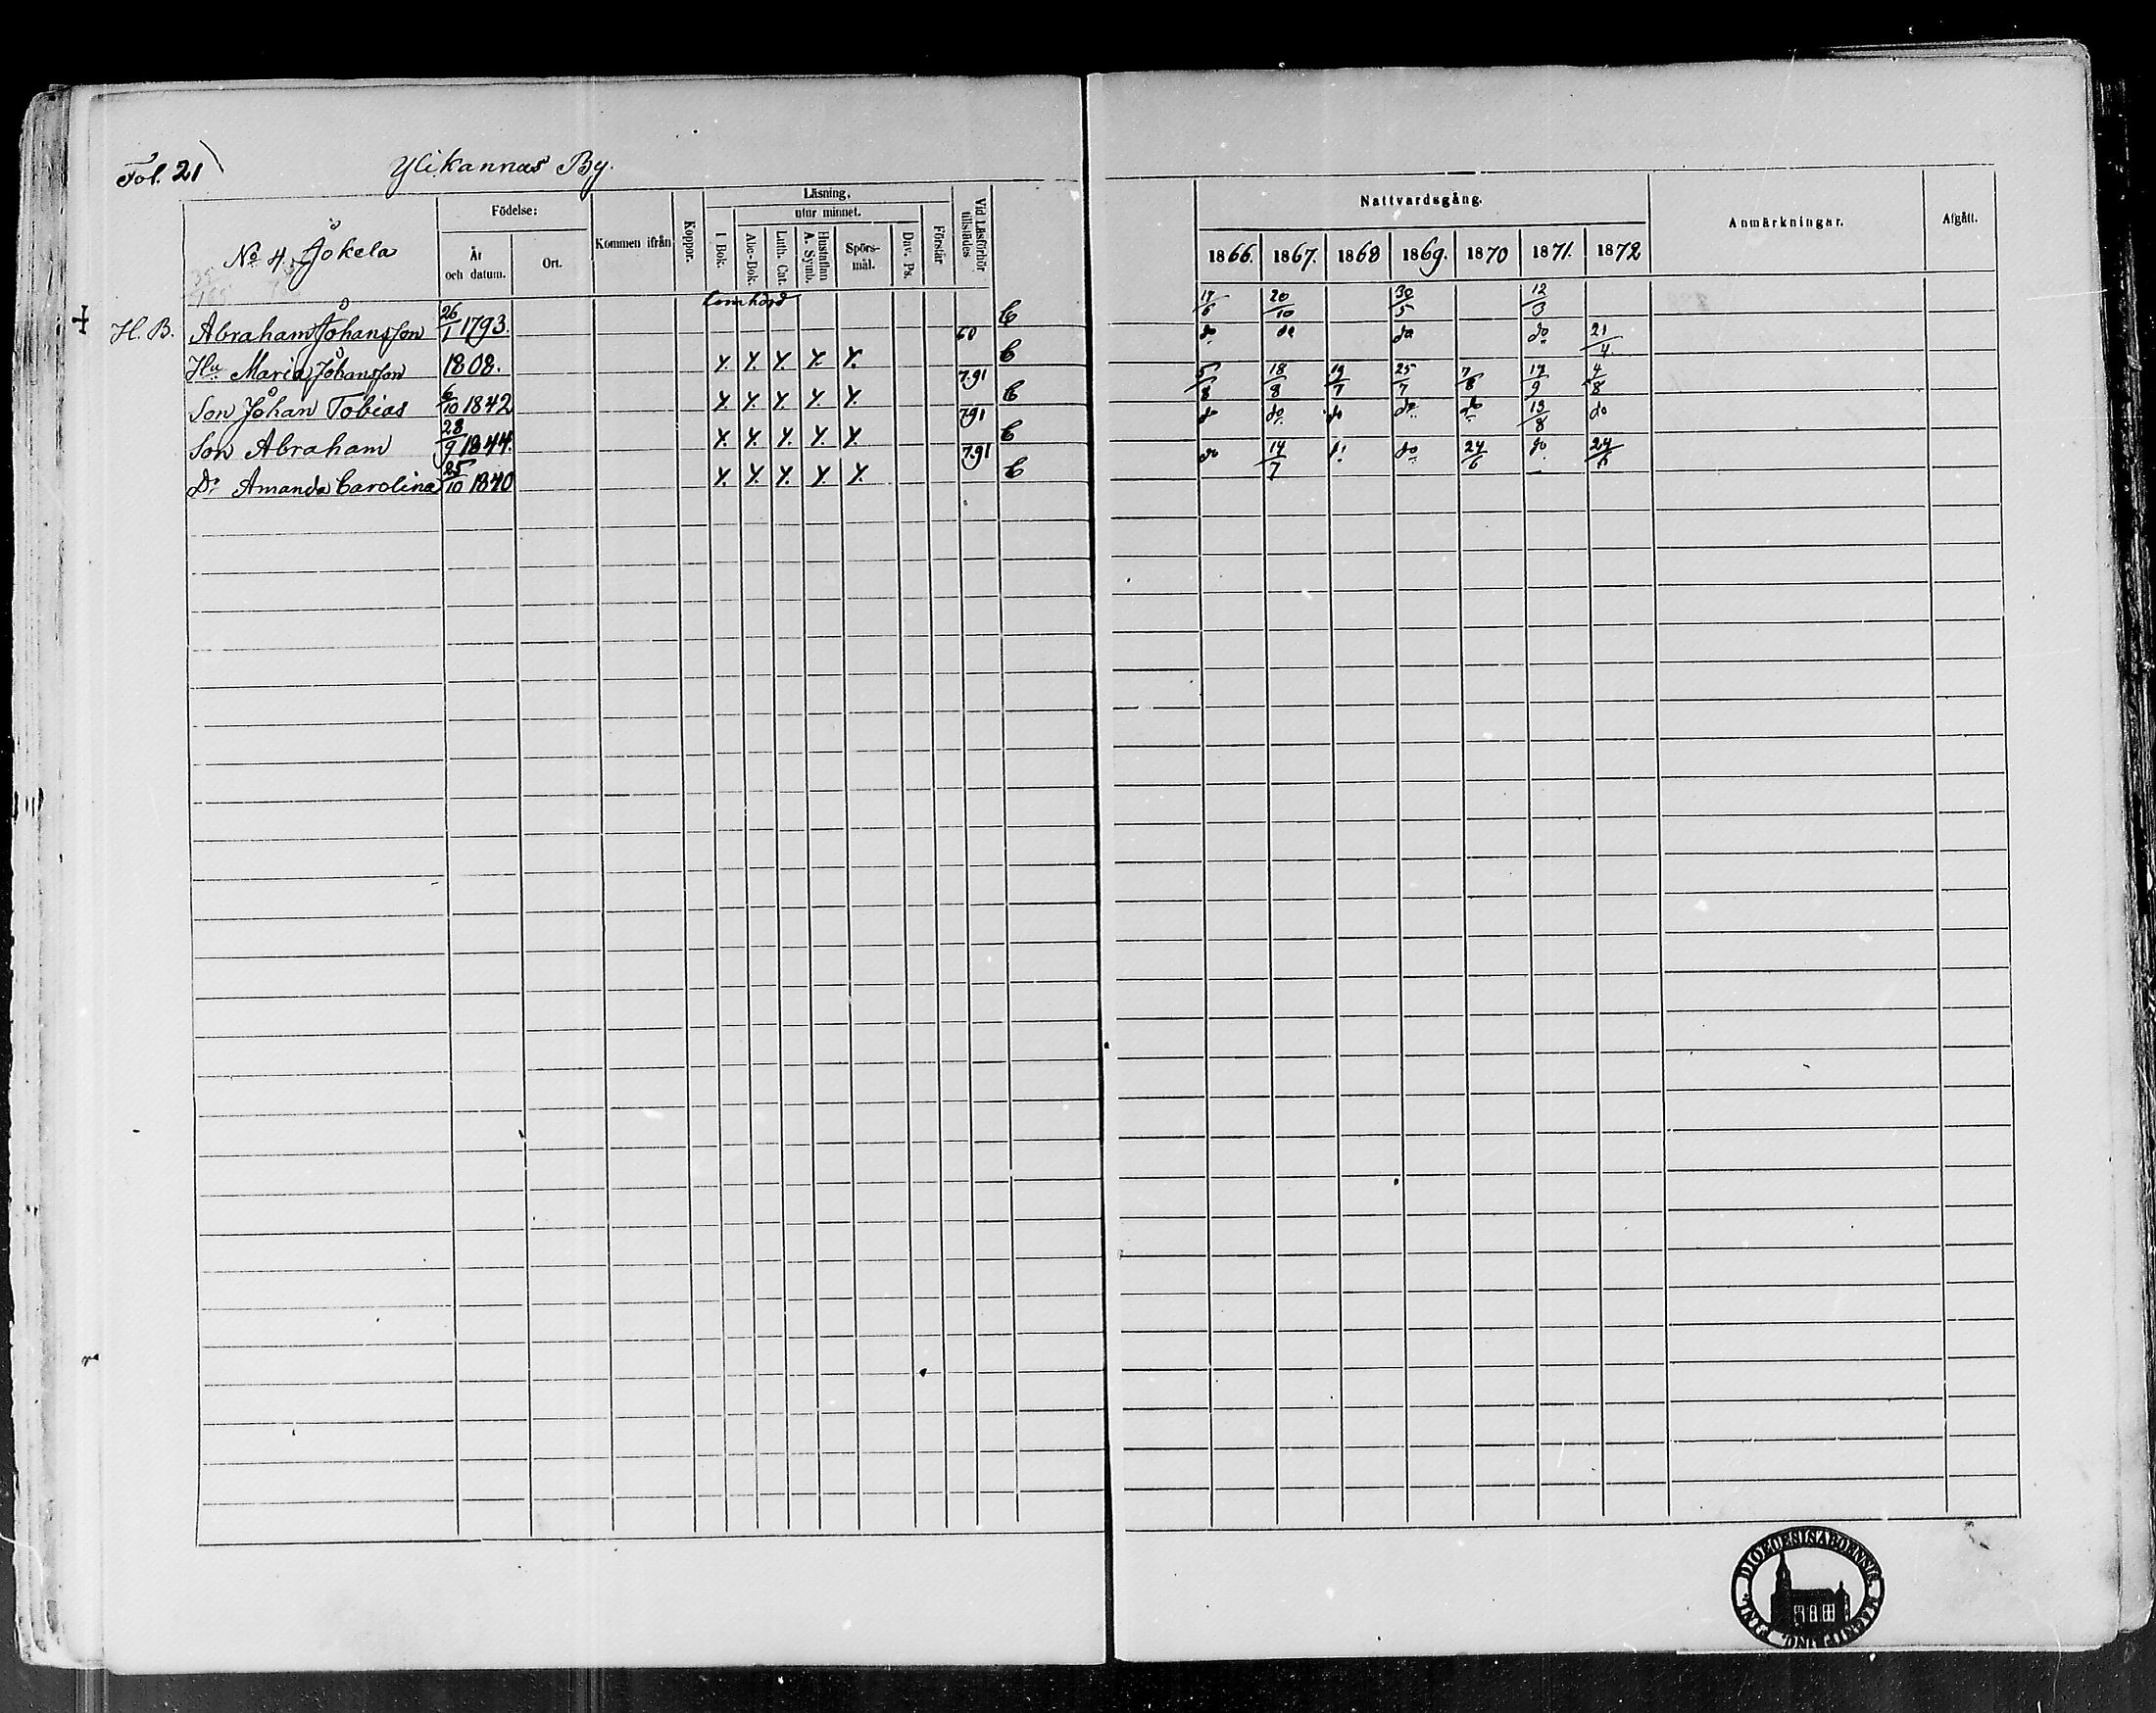 Fol. 21
Ylikannas By.
No 4 Jokela
Födelse:
År och datum.
Ort.
Kommen ifrån
Koppor.
Läsning,
utur minnet.
I Bok.
Abc-Bok.
Luth. Cat.
Hustaflan A. Symb.
Spörs-mål.
Dav. Ps.
Förstår
Vid Läsförhör tillstädes
Nattvardsgång.
1866. 1867. 1868 1869. 1870 1871. 1872
Anmärkningar.
Afgått.
H. B. Abraham Johansson 26/1 1793. Lomhörd C 17/6 20/10 30/5 12/3
Hu Maria Johansson 1808. X. X. X. X. X. 68 C do do do do 21/4
Son Johan Tobias 6/10 1842 X. X. X. X. X. 7.91 C 5/8 18/8 19/7 25/7 7/8 17/9 4/8
Son Abraham 28/9 1844. X. X. X. X. X. 7.91 C do do do do do 13/8 do
Dr Amanda Carolina 25/10 1840 X. X. X. X. X. 7.91 C do 14/7 do 24/6 do 24/6
DIOECESIS ABOENSIS